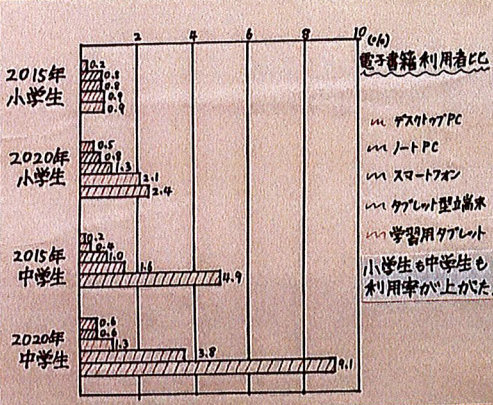 2 4 6 8 10 (%)
電子書籍利用者比
2015年
小学生
0.2
0.8
0.8
0.9
0.9
2020年
小学生
0.5
0.8
1.3
2.1
2.4
2015年
中学生
0.2
0.4
1.0
1.6
4.9
2020年
中学生
0.6
0.6
1.3
3.8
9.1
デスクトップPC
ノートPC
スマートフォン
タブレット型端末
学習用タブレット
小学生も中学生も
利用率が上がた